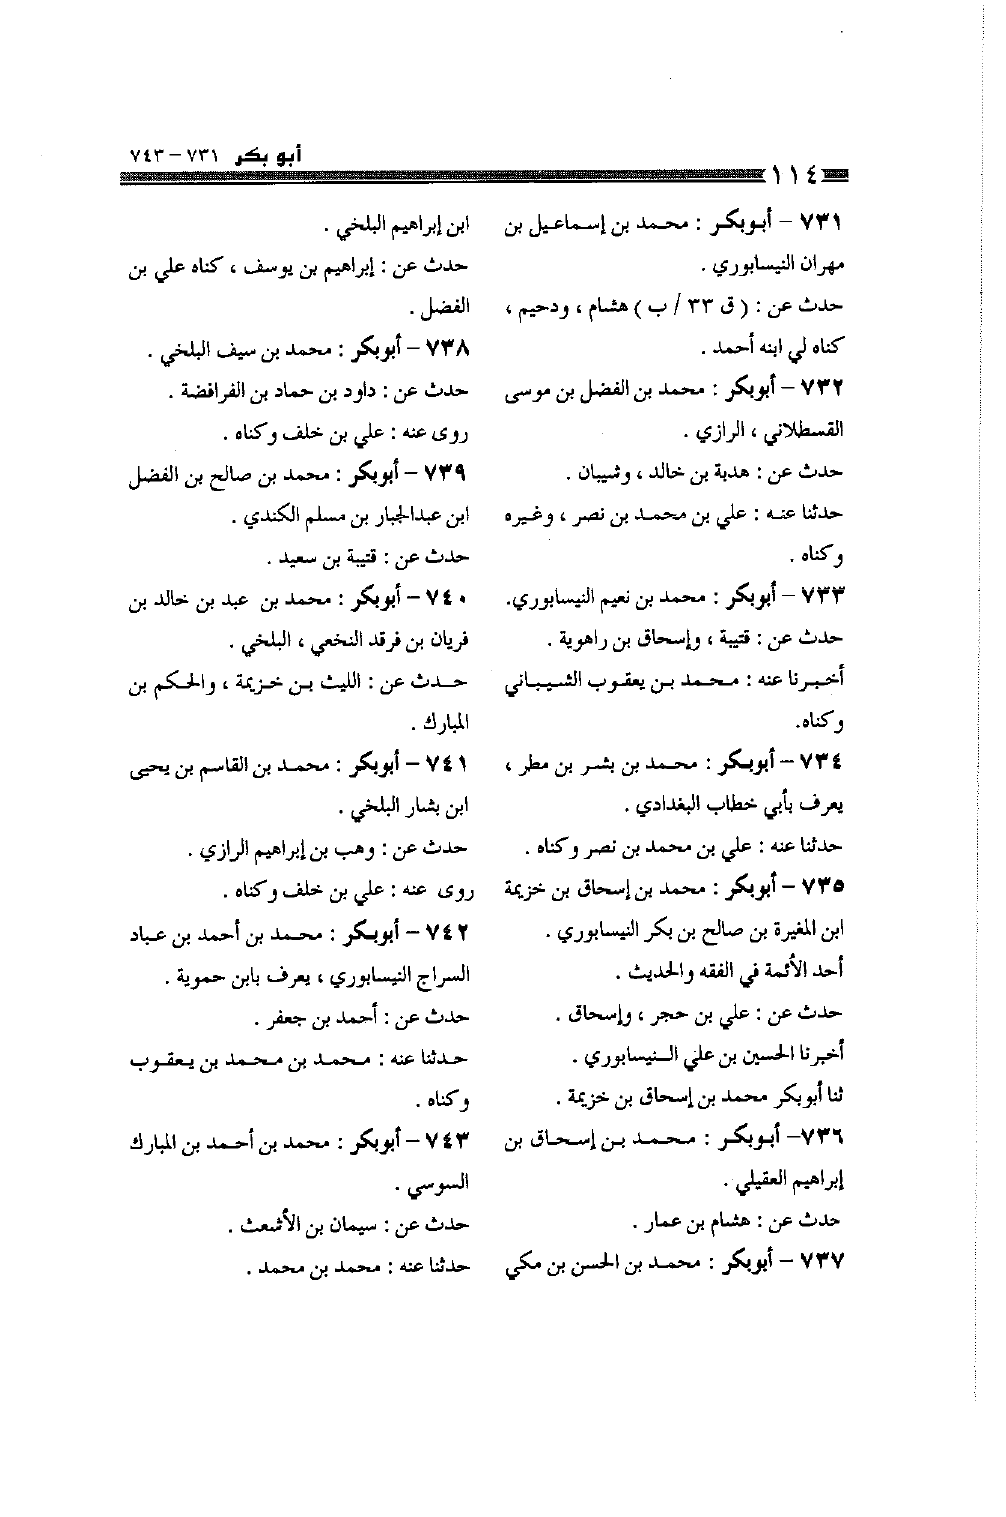 أبو بكر ٧٣١ – ٧٤٣
١١٤
٧٣١ – أبوبكر : محمد بن إسماعيل بن
مهران النيسابوري .
حدث عن : ( ق ٣٣ / ب ) هشام ، ودحيم ،
كناه لي ابنه أحمد .
٧٣٢ – أبوبكر : محمد بن الفضل بن موسى
القسطلاني ، الرازي .
حدث عن : هدبة بن خالد ، وشيبان .
حدثنا عنه : علي بن محمد بن نصر ، وغيره
وكناه .
٧٣٣ – أبوبكر : محمد بن نعيم النيسابوري.
حدث عن : قتيبة ، وإسحاق بن راهوية .
أخبرنا عنه : محمد بن يعقوب الشيباني
وكناه.
٧٣٤ – أبوبكر : محمد بن بشر بن مطر ،
يعرف بأبي خطاب البغدادي .
حدثنا عنه : علي بن محمد بن نصر وكناه .
٧٣٥ – أبوبكر : محمد بن إسحاق بن خزيمة
ابن المغيرة بن صالح بن بكر النيسابوري .
أحد الأئمة في الفقه والحديث .
حدث عن : علي بن حجر ، وإسحاق .
أخبرنا الحسين بن علي النيسابوري .
ثنا أبوبكر محمد بن إسحاق بن خزيمة .
٧٣٦– أبوبكر : محمد بن إسحاق بن
إبراهيم العقيلي .
حدث عن : هشام بن عمار .
٧٣٧ – أبوبكر : محمد بن الحسن بن مكي
ابن إبراهيم البلخي .
حدث عن : إبراهيم بن يوسف ، كناه علي بن
الفضل .
٧٣٨ – أبوبكر : محمد بن سيف البلخي .
حدث عن : داود بن حماد بن الفرافضة .
روى عنه : علي بن خلف وكناه .
٧٣٩ – أبوبكر : محمد بن صالح بن الفضل
ابن عبدالجبار بن مسلم الكندي .
حدث عن : قتيبة بن سعيد .
٧٤٠ – أبوبكر : محمد بن عبد بن خالد بن
فريان بن فرقد النخعي ، البلخي .
حدث عن : الليث بن خزيمة ، والحكم بن
المبارك .
٧٤١ – أبوبكر : محمد بن القاسم بن يحيى
ابن بشار البلخي .
حدث عن : وهب بن إبراهيم الرازي .
روى عنه : علي بن خلف وكناه .
٧٤٢ – أبوبكر : محمد بن أحمد بن عباد
السراج النيسابوري ، يعرف بابن حموية .
حدث عن : أحمد بن جعفر .
حدثنا عنه : محمد بن محمد بن يعقوب
وكناه .
٧٤٣ – أبوبكر : محمد بن أحمد بن المبارك
السوسي .
حدث عن : سيمان بن الأشعث .
حدثنا عنه : محمد بن محمد .